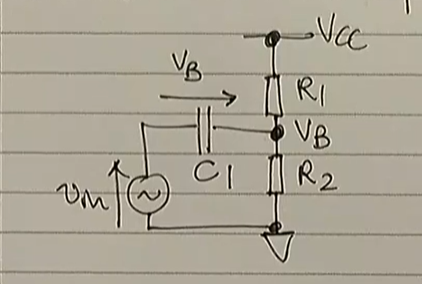 VCC
VB
R1
VB
C1
R2
vin